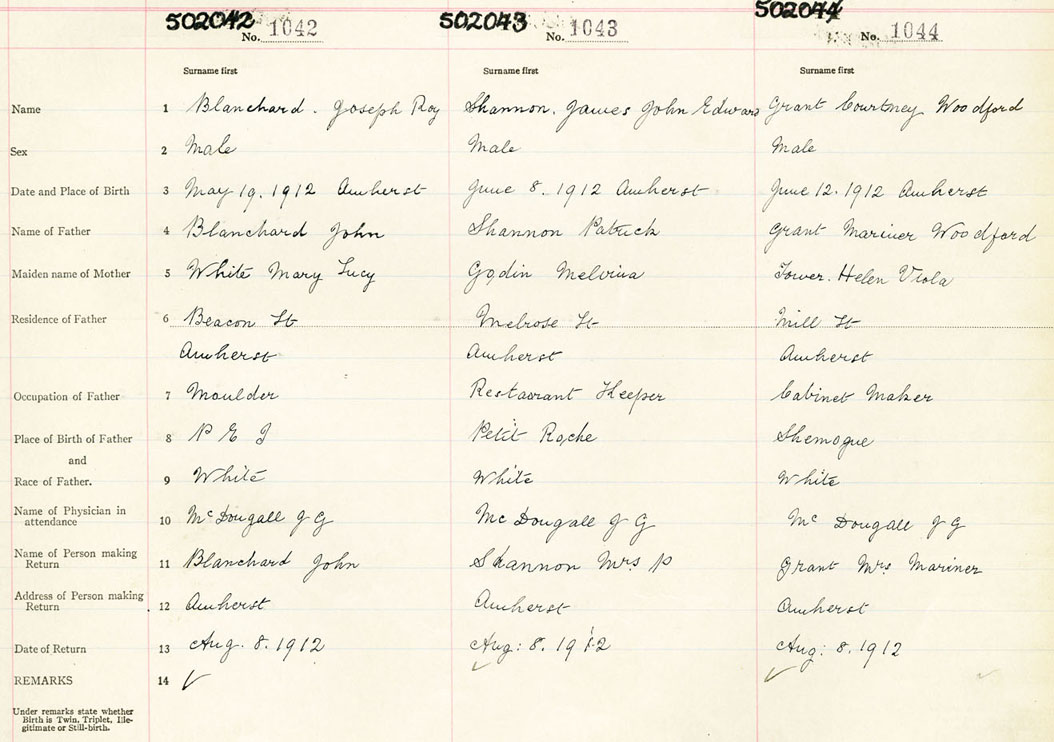 502042 502043 502044
No. 1042 No. 1043 No. 1044
Surname first Surname first Surname first
Name 1 Blanchard. Joseph Roy Shannon. James John Edward Grant Courtney Woodford
Sex 2 Male Male Male
Date and Place of Birth 3 May 19. 1912 Amherst June 8. 1912 Amherst June 12. 1912 Amherst
Name of Father 4 Blanchard John Shannon Patrick Grant Mariner Woodford
Maiden name of Mother 5 White Mary Lucy Godin Melvina Tower. Helen Viola
Residence of Father 6 Beacon St Melrose St Mill St
Amherst Amherst Amherst
Occupation of Father 7 Moulder Restaurant Keeper Cabinet Maker
Place of Birth of Father 8 P E I Petit Roche Shemogue
and
Race of Father. 9 White White White
Name of Physician in
attendance 10 McDougall J G Mc Dougall J G Mc Dougall J G
Name of Person making
Return 11 Blanchard John Shannon Mrs P Grant Mrs Mariner
Address of Person making
Return 12 Amherst Amherst Amherst
Date of Return 13 Aug. 8. 1912 Aug: 8. 1912 Aug: 8. 1912
REMARKS 14 ✓ ✓ ✓
Under remarks state whether
Birth is Twin, Triplet, Ille-
gitimate or Still-birth.